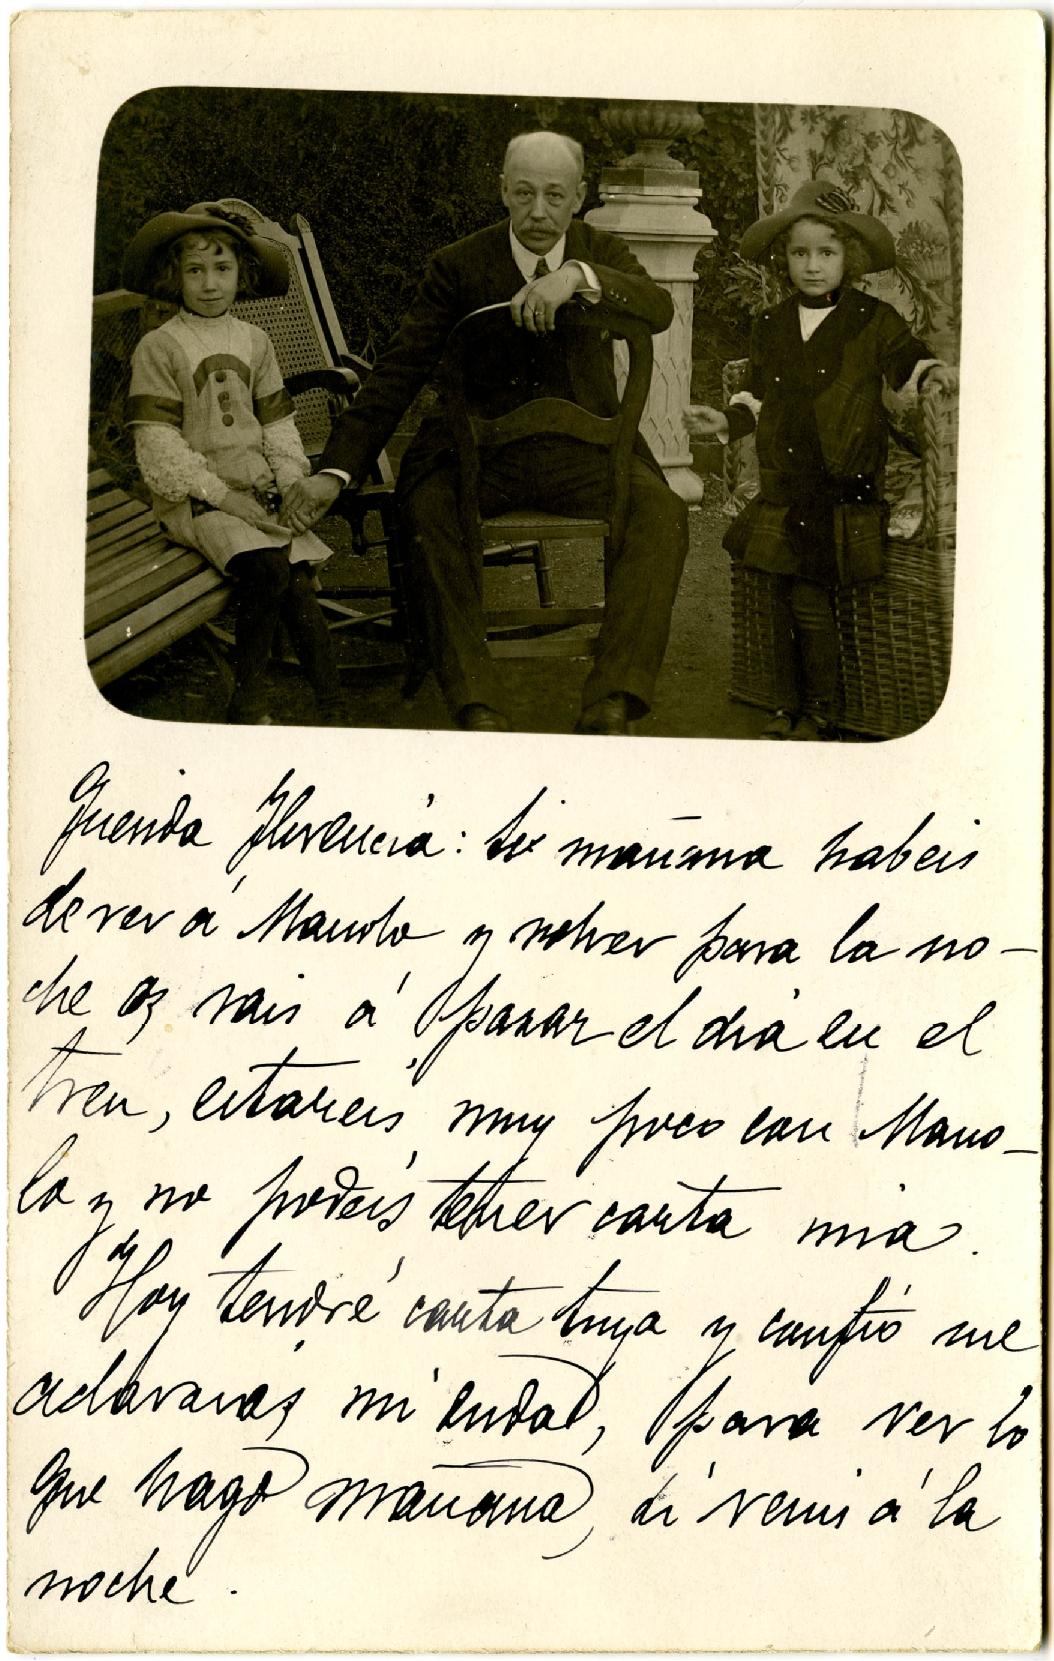 Querida Florencia: si mañana habeis
de ver á Manolo y volver para la no-
che os vais á pasar el dia en el
tren, estareis muy poco con Mano-
lo y no podeis tener carta mia.
Hoy tendré carta tuya y confió me
aclararás mi duda, para ver lo
que hago mañana, si venis á la
noche.